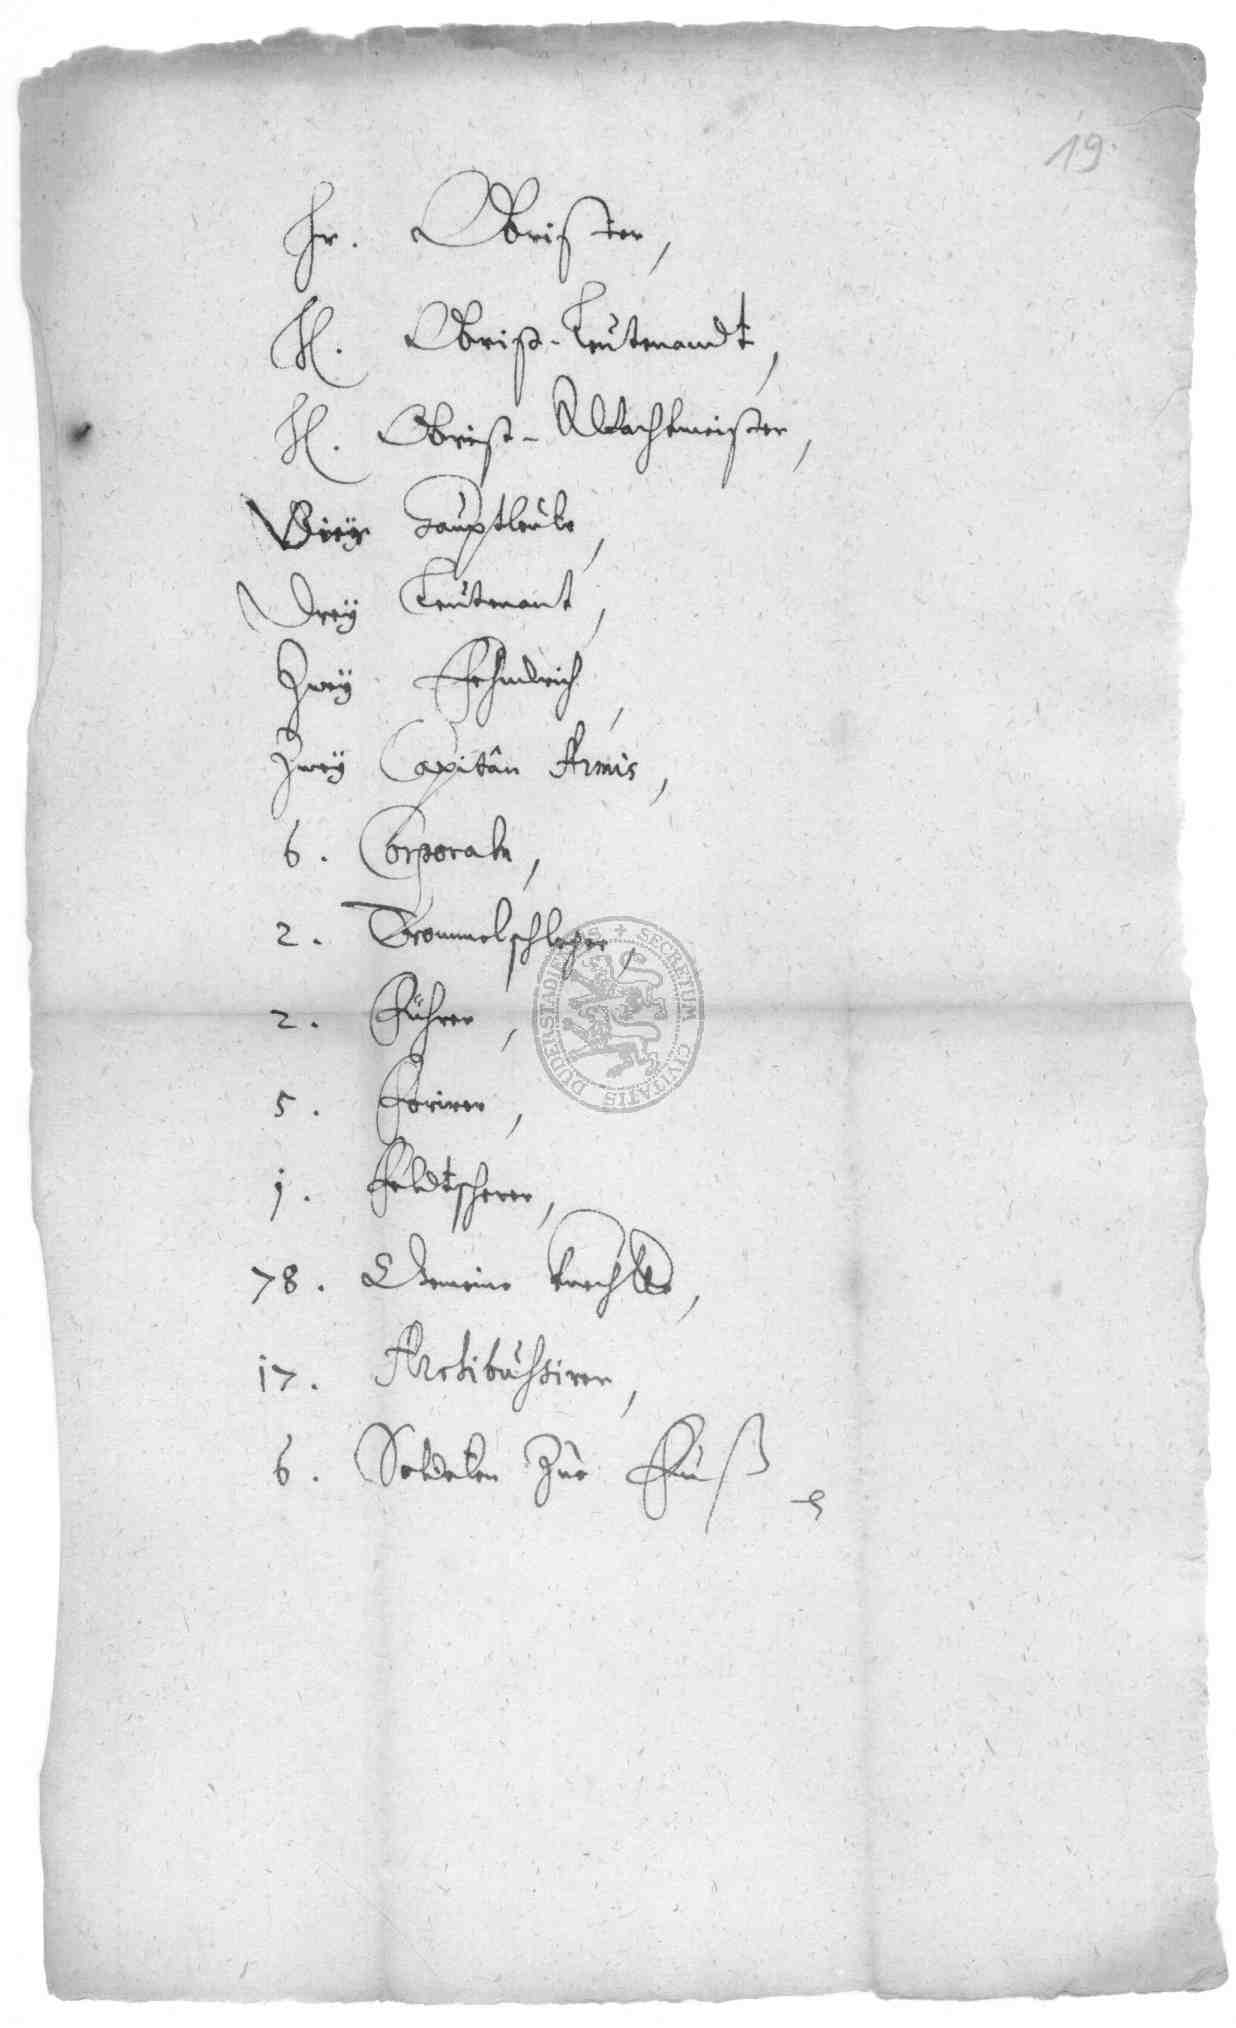 19.
Hr. Obrister,
H. Obrist-Leutenandt,
H. Obrist-Wachtmeister,
Drey Hauptleute,
Drey Leutenant,
Zwey Fehndrich,
Zwey Capitân Armis,
6. Corporaln,
2. Trommelschleger,
2. Führer,
5. Forirer,
1. Feldtscherer,
78. Gemeine knechtte,
17. Archibuhsirer,
6. Soldaten Zue Fuß
SECRETUM CIVITATIS DUDERSTADIENSIS